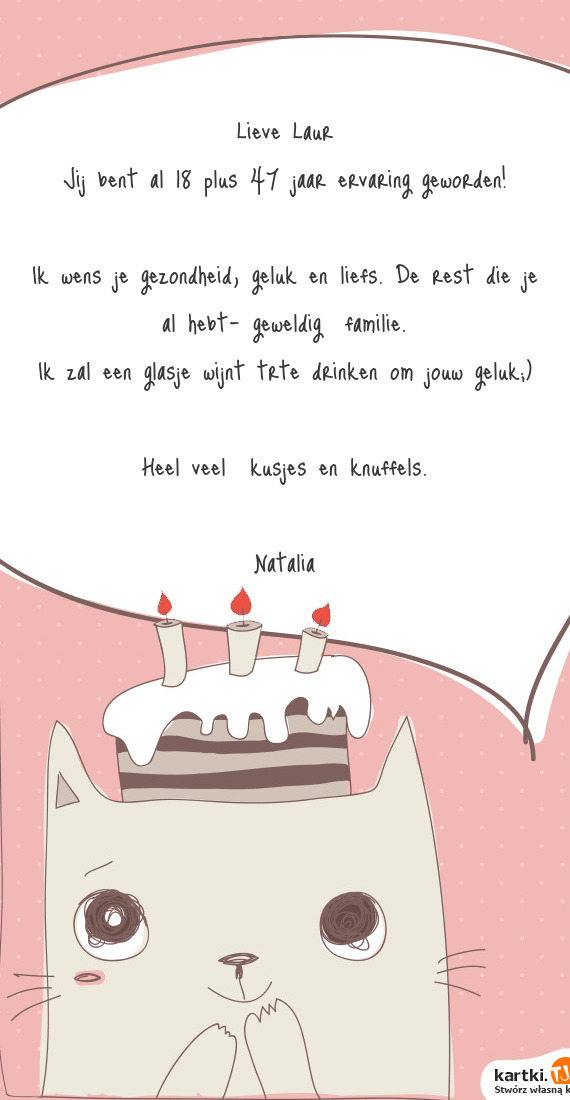 Lieve Laur
Jij bent al 18 plus 47 jaar ervaring geworden!
Ik wens je gezondheid, geluk en liefs. De rest die je
al hebt- geweldig familie.
Ik zal een glasje wijnt trte drinken om jouw geluk;)
Heel veel kusjes en knuffels.
Natalia
kartki.TJ
Stwórz własną k